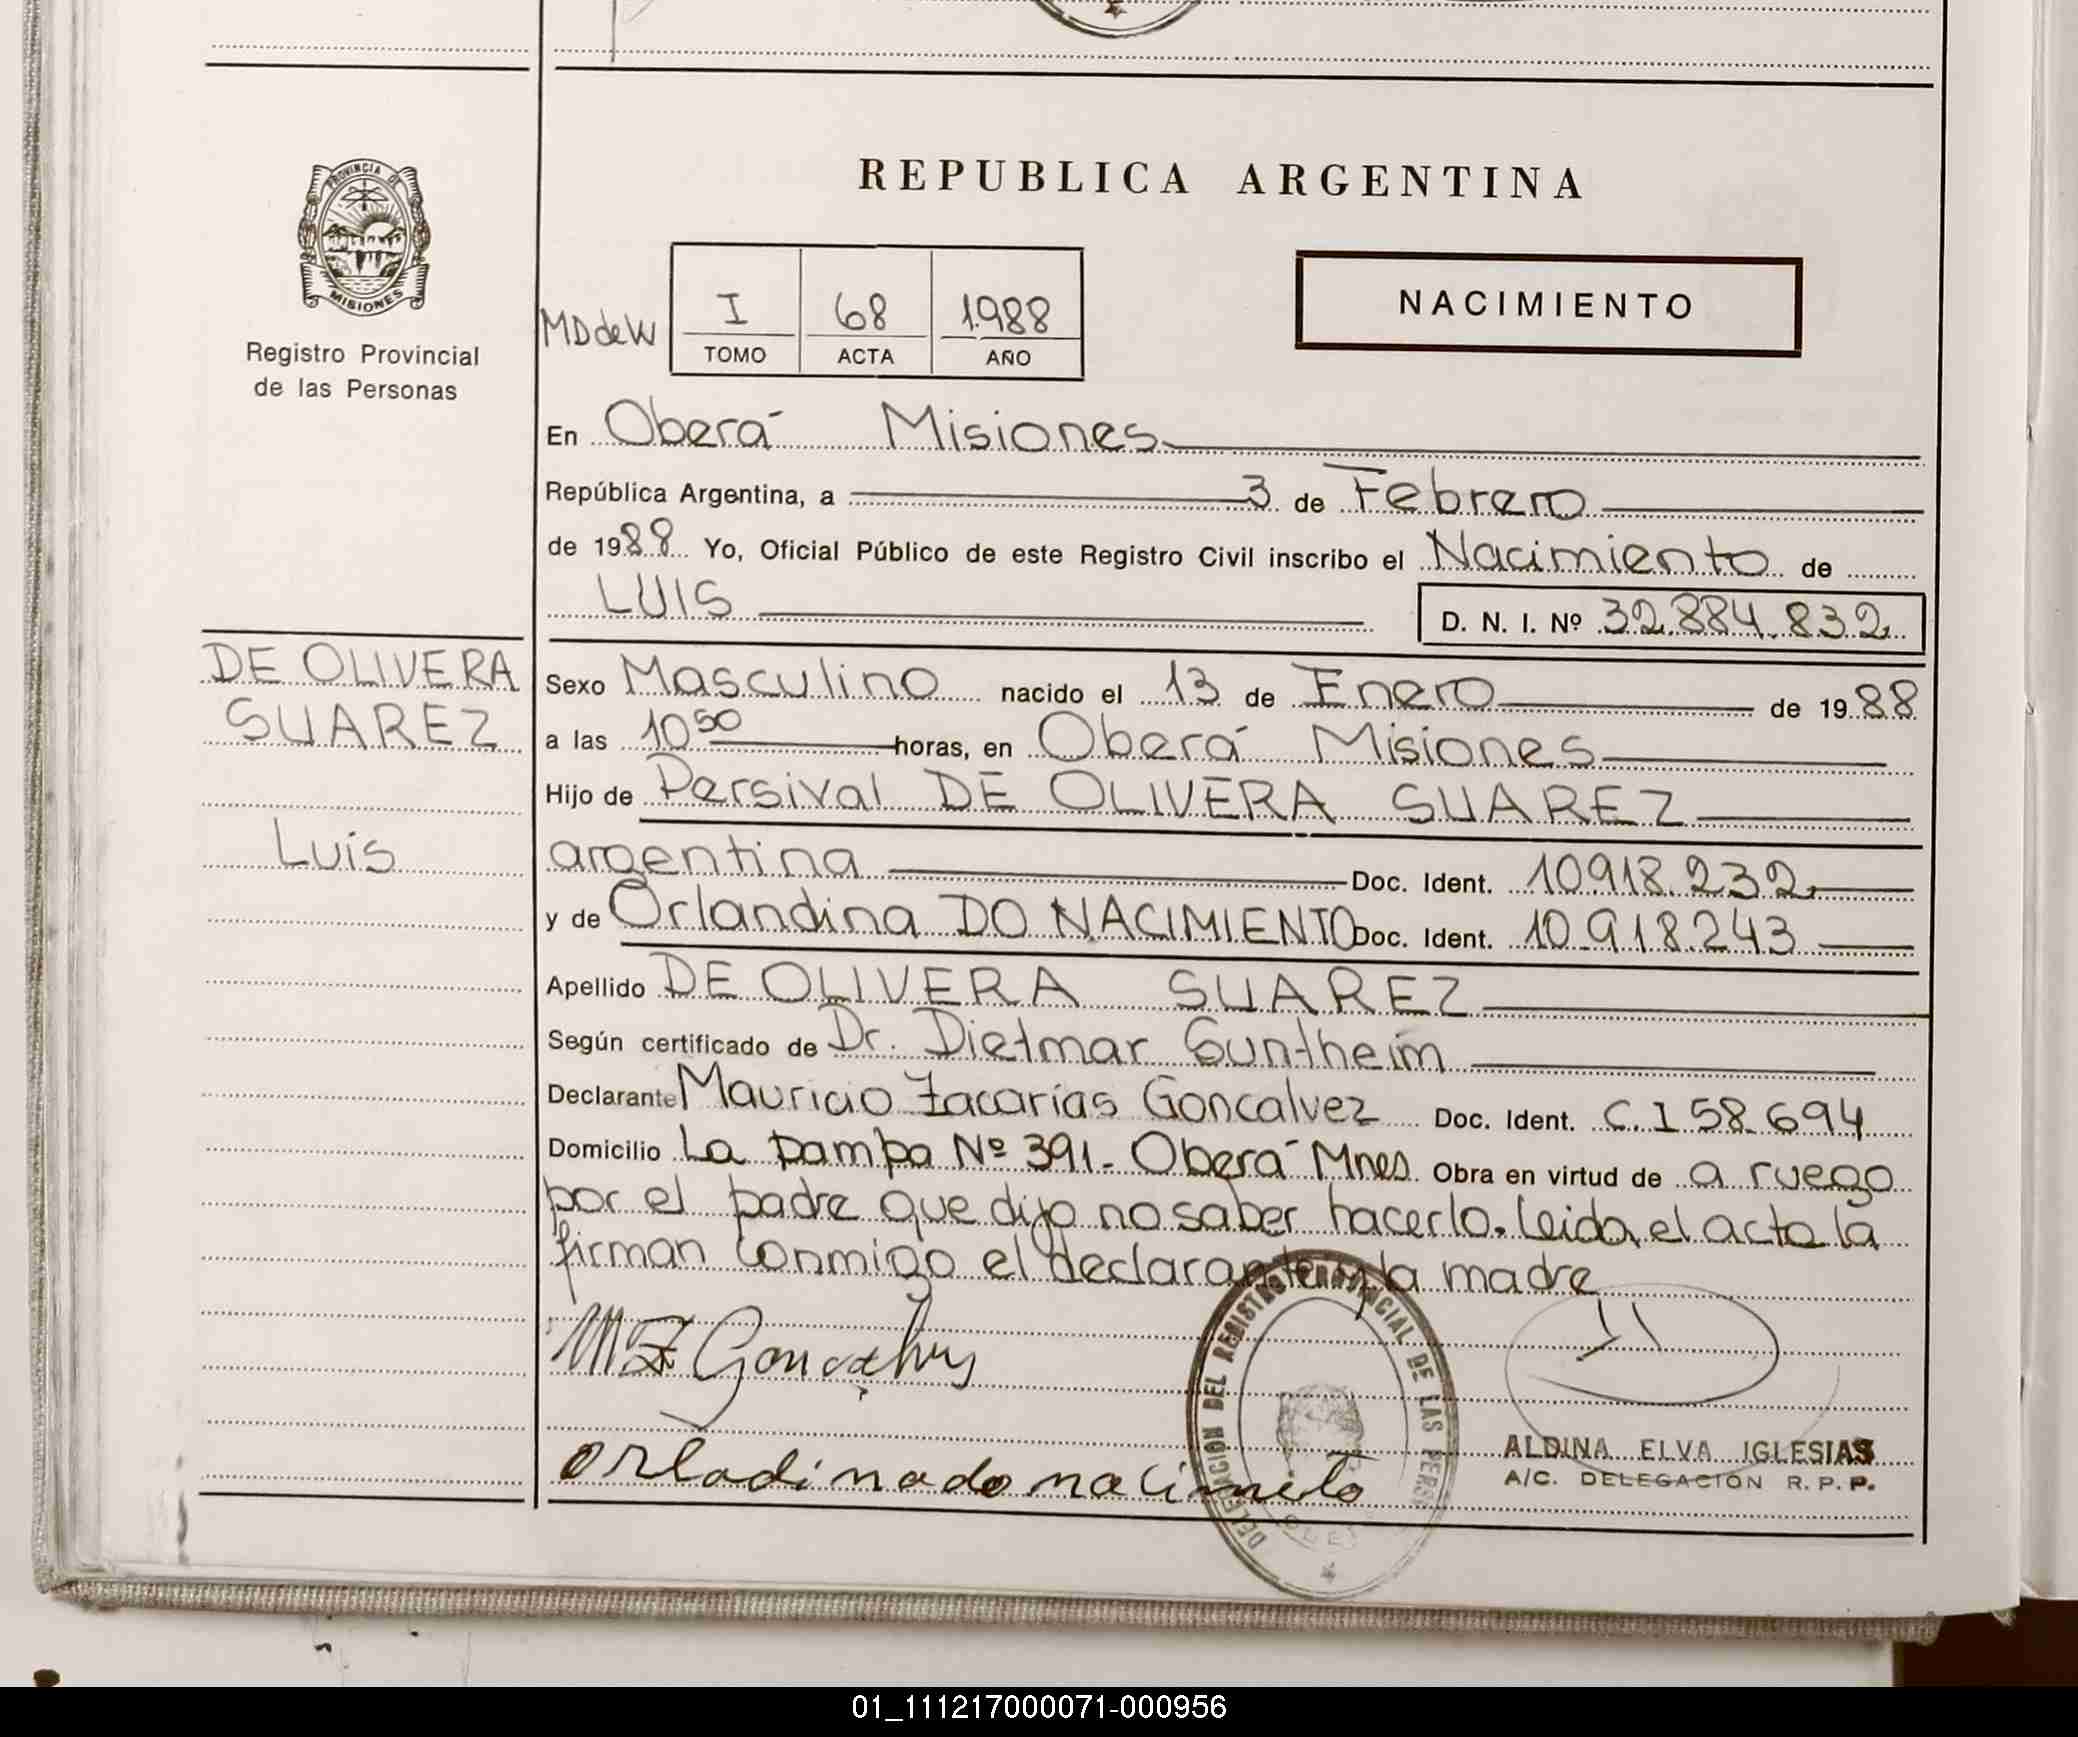 PROVINCIA DE
MISIONES
Registro Provincial
de las Personas
REPUBLICA ARGENTINA
NACIMIENTO
MD de W
I 68 1988
TOMO ACTA AÑO
En Oberá Misiones
República Argentina, a 3 de Febrero
de 1988 Yo, Oficial Público de este Registro Civil inscribo el Nacimiento de
LUIS D. N. I. Nº 32.884.832
DE OLIVERA
SUAREZ
Luis
Sexo Masculino nacido el 13 de Enero de 1988
a las 10 50 horas, en Oberá Misiones
Hijo de Persival DE OLIVERA SUAREZ
argentina Doc. Ident. 10918.232
y de Orlandina DO NACIMIENTO Doc. Ident. 10.918.243
Apellido DE OLIVERA SUAREZ
Según certificado de Dr. Dietmar Suntheim
Declarante Mauricio Zacarías Goncalvez Doc. Ident. C.I 58.694
Domicilio La Pampa Nº 391- Oberá Mnes Obra en virtud de a ruego
por el padre que dijo no saber hacerlo. Leida el acta la
firman conmigo el declarante y la madre
M Z Goncalves
orladina do nacimeto
DELEGACION DEL REGISTRO PROVINCIAL DE LAS PERS
ALDINA ELVA IGLESIAS
A/C. DELEGACIÓN R.P.P.
01_111217000071-000956